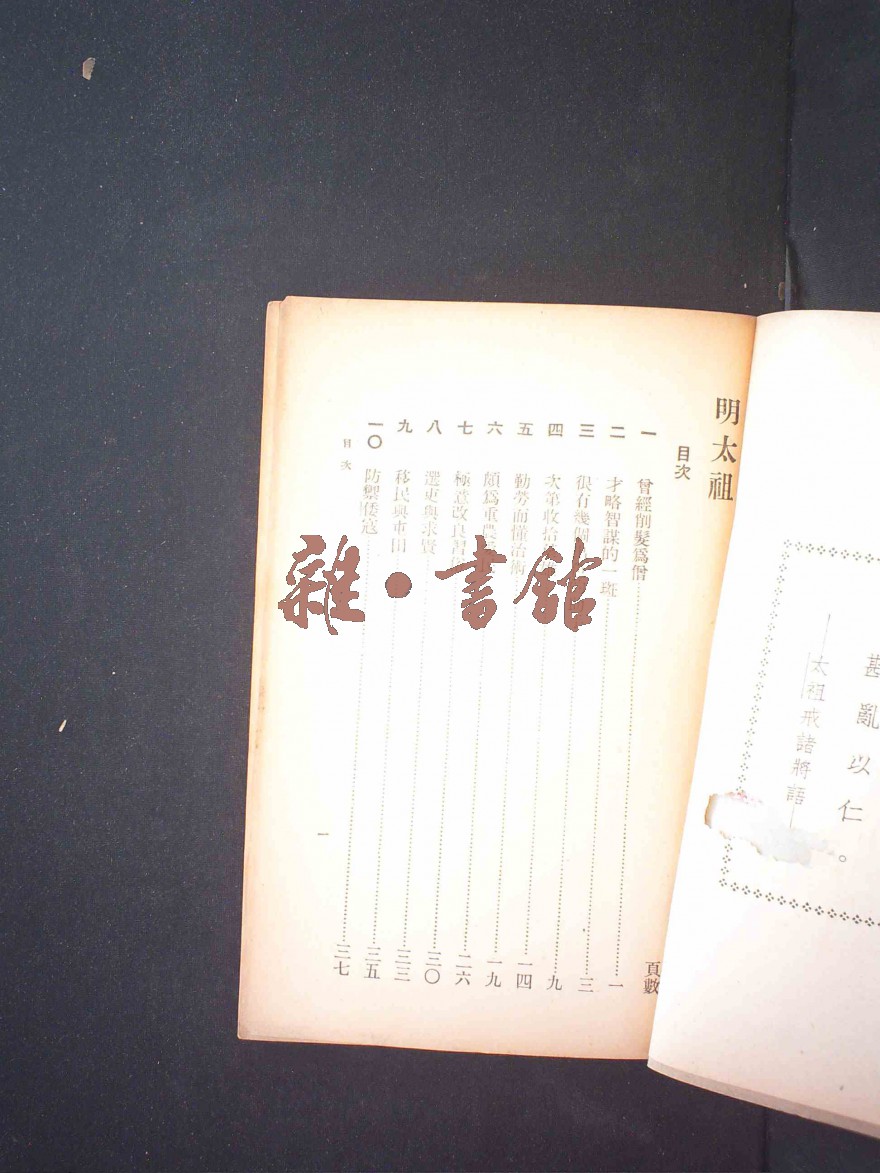 戡亂以仁。
——太祖戒諸將語——
明太祖
目次
頁數
一 曾經削髮爲僧……一
二 才略智謀的一斑……三
三 很有幾個……九
四 次第收拾……一四
五 勤勞而懂治術……一九
六 頗爲重農……二六
七 極意改良……三〇
八 選吏與求賢……三三
九 移民與屯田……三五
一〇 防禦倭寇……三七
目次
一
雜·書館